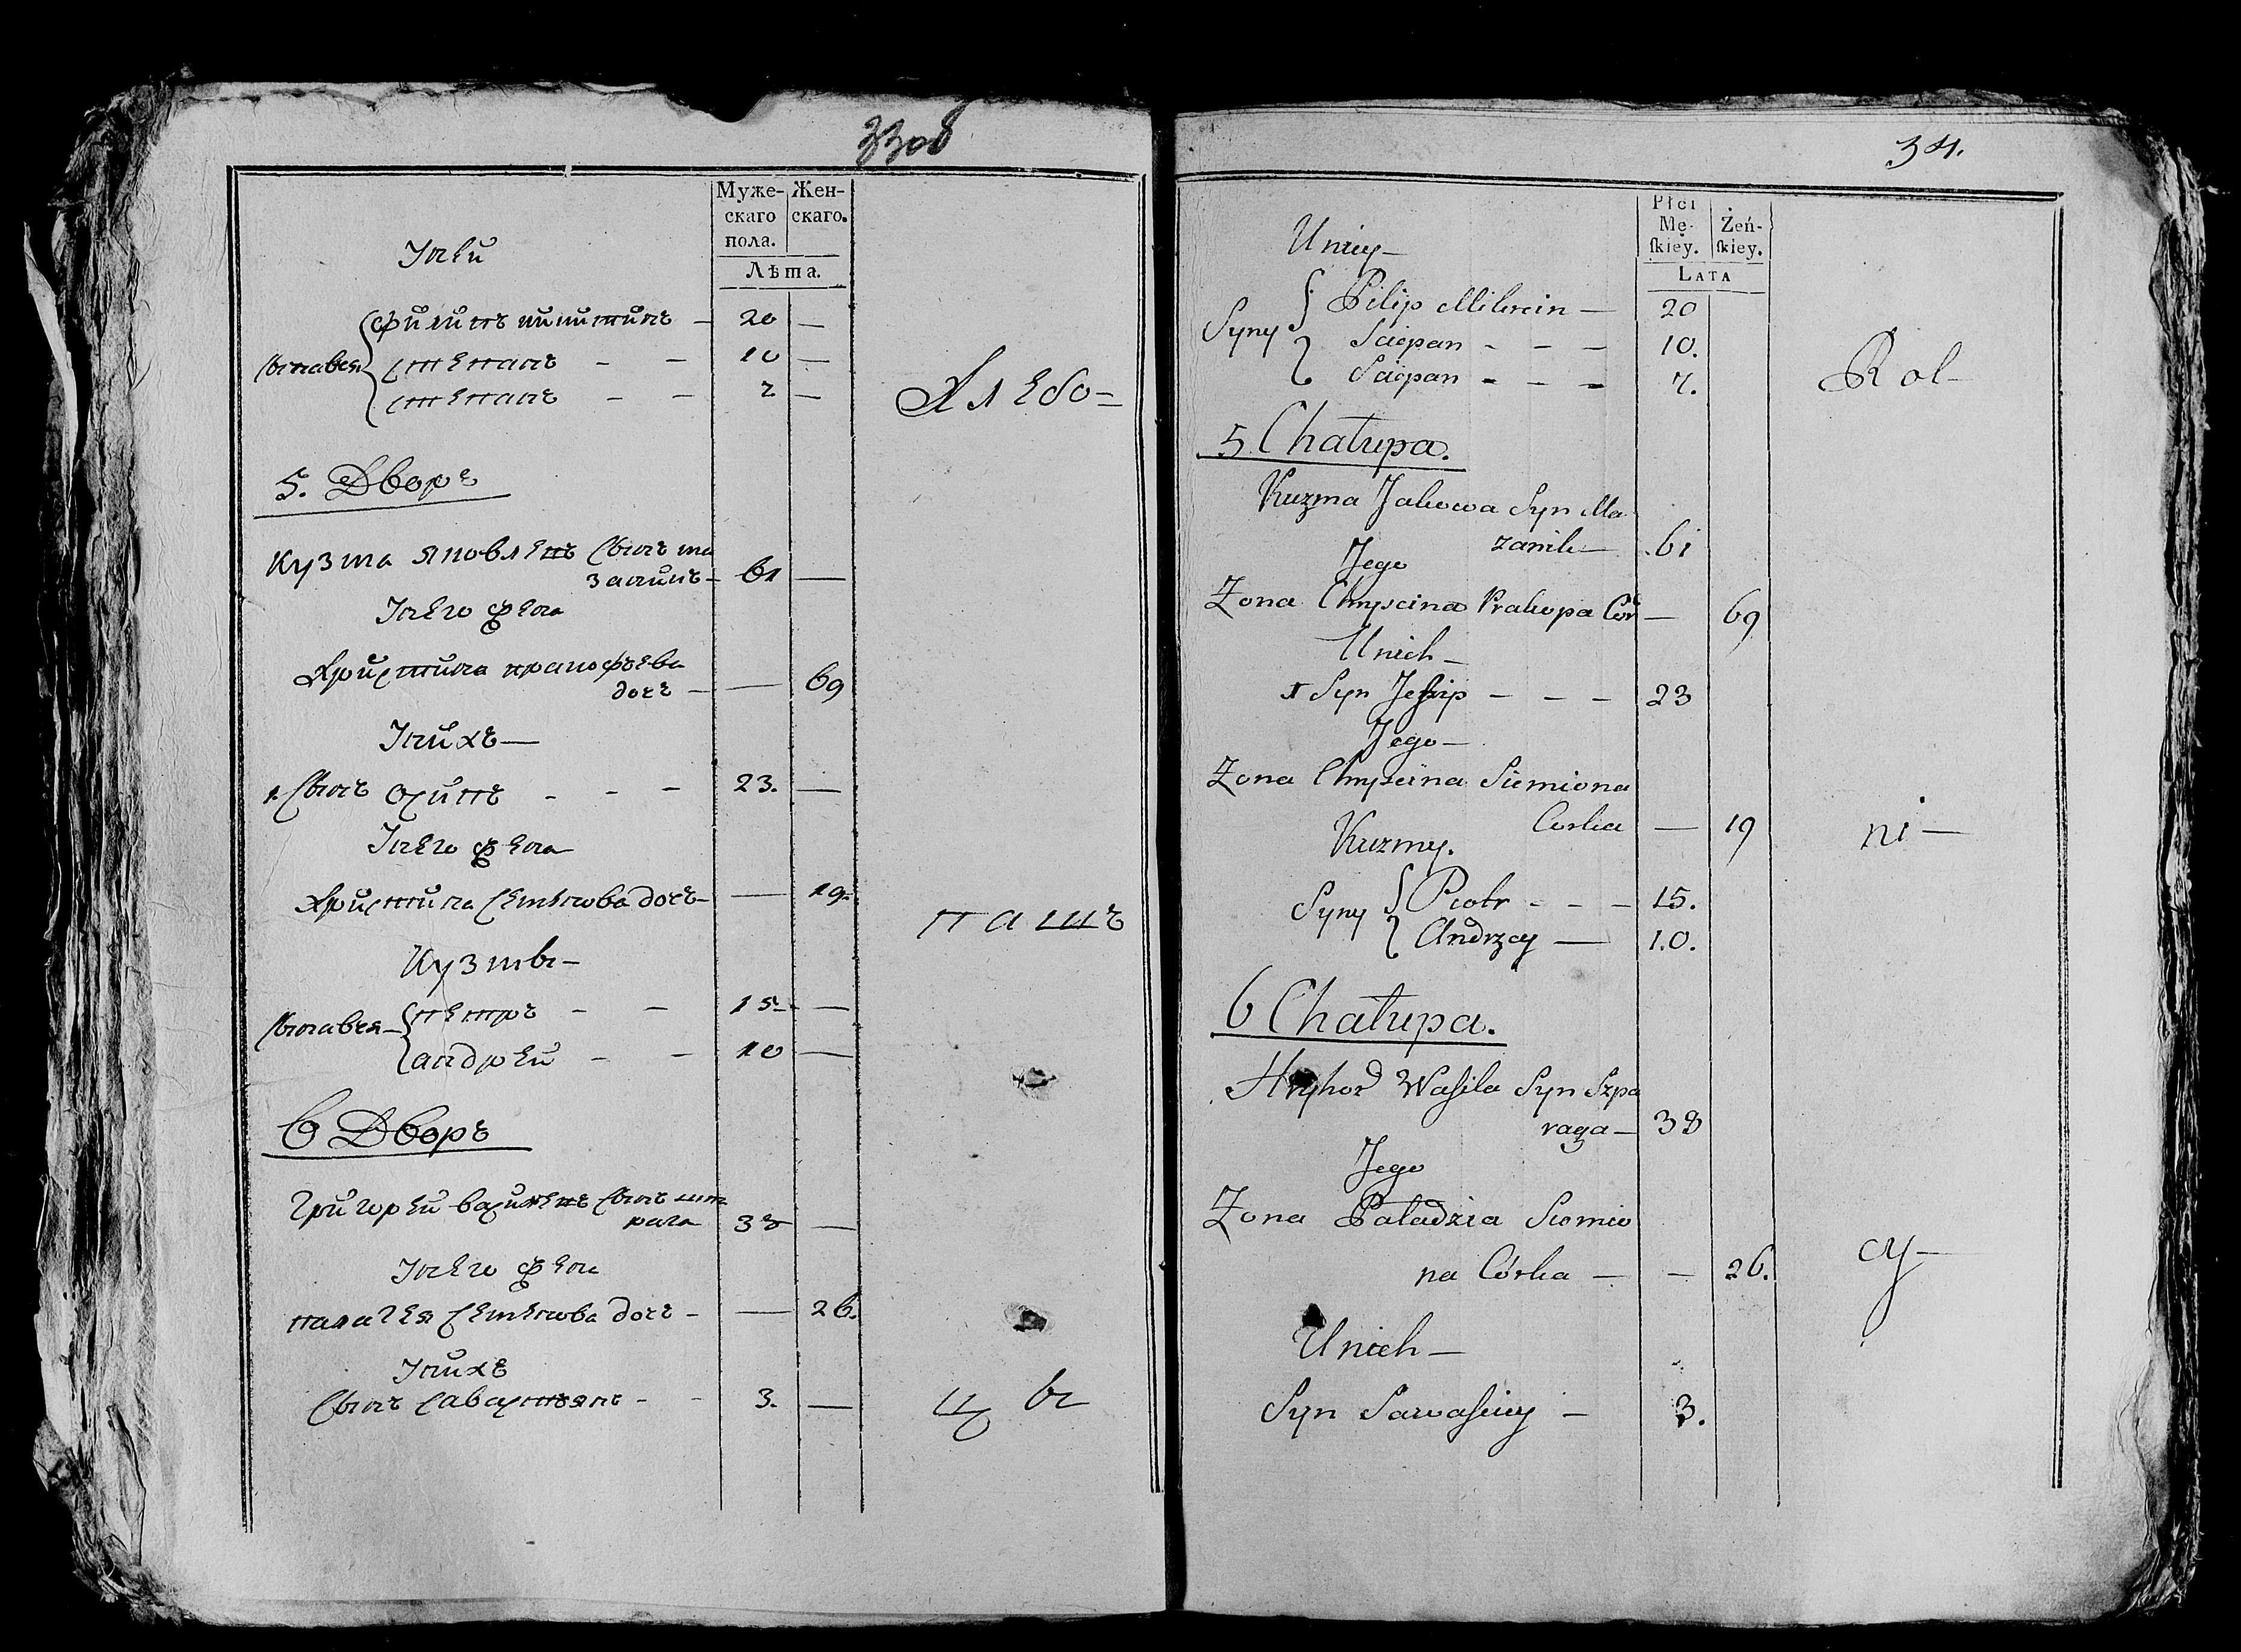 33об
Муже-
скаго
пола.
Жен-
скаго.
Лѣта.
Унеи
сыновья
филипъ никитинъ — 20 —
степанъ - - 10 —
степанъ - - 7 —
Хлебо=
5. Дворъ
Кузма яковлевъ сынъ ма
заникъ - 61 —
Унего жена
Христина пракофьева
дочь - — 69
Унихъ —
1. Сынъ осипъ - - - 23. —
Унего жена
Христина семенова дочь - — 19.
пашъ
Кузмы -
сыновья -
петръ - - 15 - —
андрей - - 10 —
6 Дворъ
Григорей васильевъ сынъ шпа
рага 38 —
Унего жена
палагея семенова дочь - — 26.
Унихъ
Сынъ савастьянъ - - 3. —
цы
34.
Płci
Mę-
ſkiey.
Żeń-
ſkiey.
LATA
Uniey —
Syny
Pilip Mikicin — 20
Sciepan - - - 10.
Sciepan - - - 7.
Rol-
5 Chałupa.
Kuzma Jakowa Syn Ma
zanik — 61
Jego
Zona Chryscina Prakopa Cor — 69
Unich —
1 Syn Jeſsip - - - 23
Jego —
Zona Chryscina Siemiona
Corka — 19
ni —
Kuzmy.
Syny
Piotr - - - 15.
Andrzey — 10.
6 Chałupa.
Hryhor Waſila Syn Szpa
raga — 38
Jego
Zona Paładzia Siemio
na Córka — - 26.
cy —
Unich —
Syn Sawaſciey — 3.